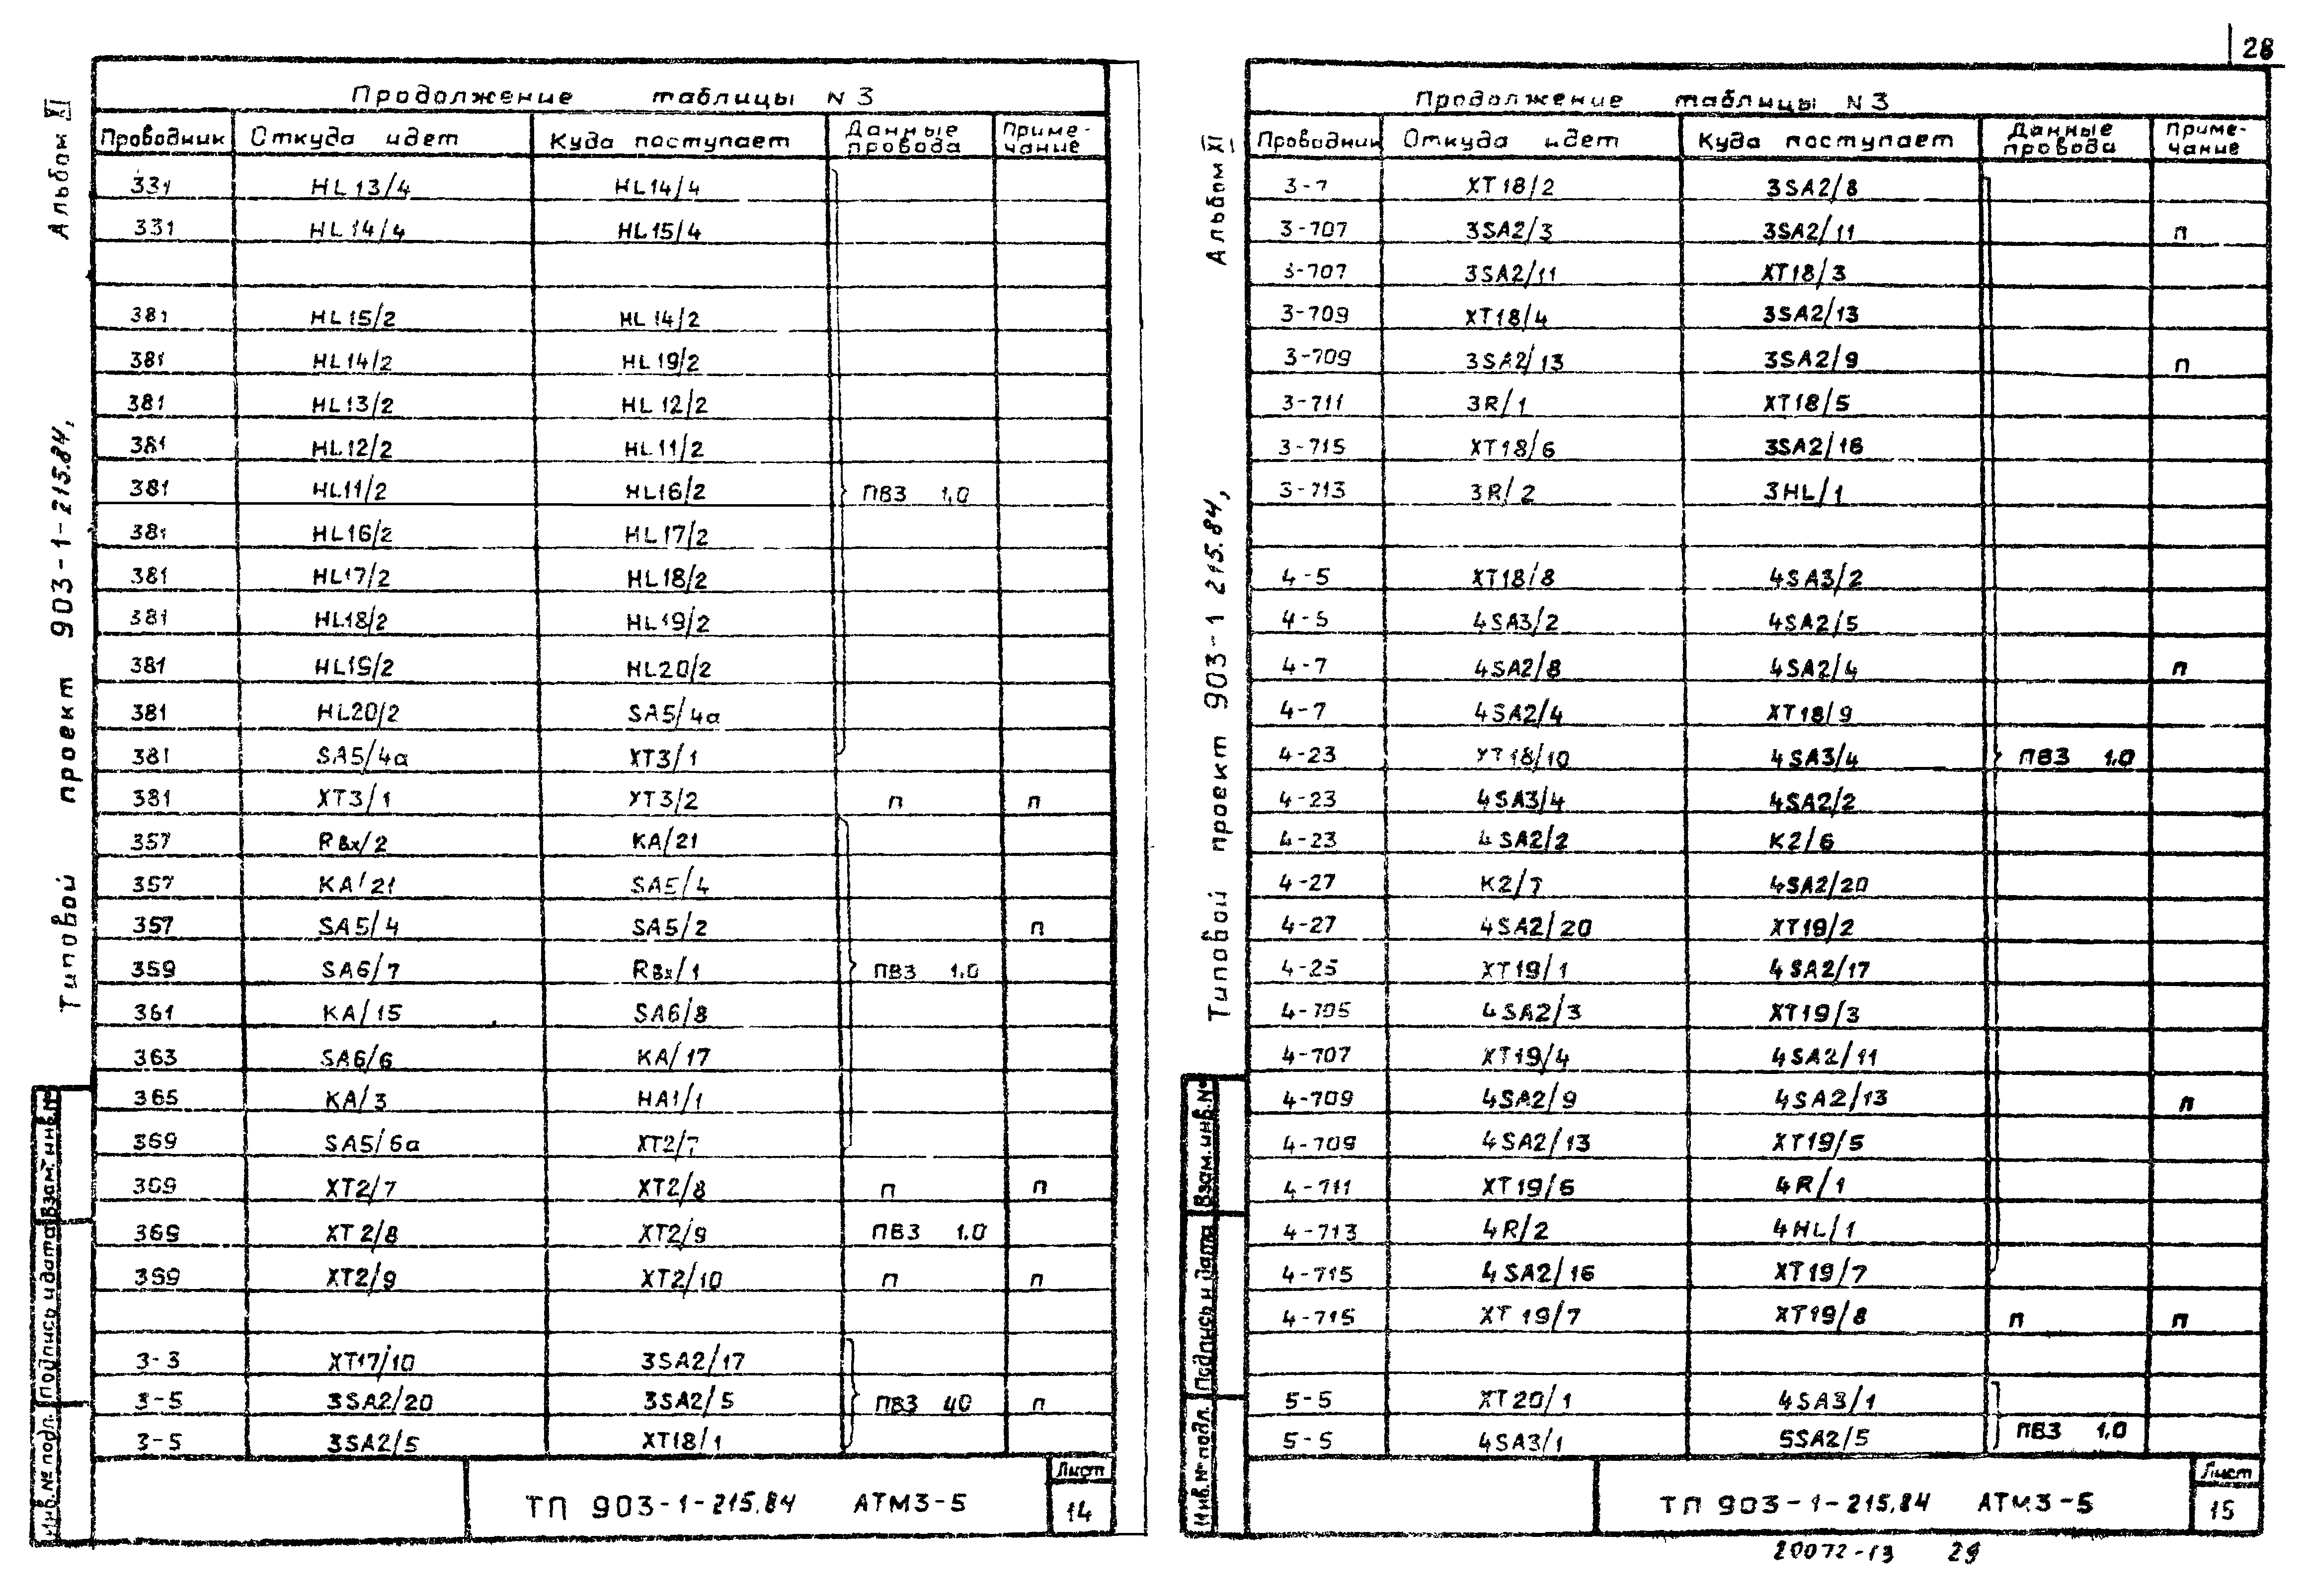 28
Альбом XI
Типовой проект 903-1-215.84,
Продолжение таблицы N 3
Проводник Откуда идет Куда поступает Данные провода Приме-чание
331 HL13/4 HL14/4
331 HL14/4 HL15/4
381 HL15/2 HL14/2
381 HL14/2 HL19/2
381 HL13/2 HL12/2
381 HL12/2 HL11/2
381 HL11/2 HL16/2 ПВ3 1,0
381 HL16/2 HL17/2
381 HL17/2 HL18/2
381 HL18/2 HL19/2
381 HL19/2 HL20/2
381 HL20/2 SA5/4а
381 SA5/4а XT3/1
381 XT3/1 XT3/2 п п
357 Rвх/2 KA/21
357 KA/21 SA5/4
357 SA5/4 SA5/2 п
359 SA6/7 Rвх/1 ПВ3 1,0
361 KA/15 SA6/8
363 SA6/6 KA/17
365 KA/3 HA1/1
369 SA5/6а XT2/7
369 XT2/7 XT2/8 п п
369 XT2/8 XT2/9 ПВ3 1,0
369 XT2/9 XT2/10 п п
3-3 XT17/10 3SA2/17
3-5 3SA2/20 3SA2/5 ПВ3 40 п
3-5 3SA2/5 XT18/1
ТП 903-1-215.84 АТМ3-5
Лист
14
Инв.№ подл. Подпись и дата Взам. инв.№
Альбом XI
Типовой проект 903-1 215.84,
Продолжение таблицы N 3
Проводник Откуда идет Куда поступает Данные провода Приме-чание
3-7 XT18/2 3SA2/8
3-707 3SA2/3 3SA2/11 п
3-707 3SA2/11 XT18/3
3-709 XT18/4 3SA2/13
3-709 3SA2/13 3SA2/9 п
3-711 3R/1 XT18/5
3-715 XT18/6 3SA2/16
3-713 3R/2 3HL/1
4-5 XT18/8 4SA3/2
4-5 4SA3/2 4SA2/5
4-7 4SA2/8 4SA2/4 п
4-7 4SA2/4 XT18/9
4-23 XT18/10 4SA3/4 ПВ3 1,0
4-23 4SA3/4 4SA2/2
4-23 4SA2/2 K2/6
4-27 K2/7 4SA2/20
4-27 4SA2/20 XT19/2
4-25 XT19/1 4SA2/17
4-705 4SA2/3 XT19/3
4-707 XT19/4 4SA2/11
4-709 4SA2/9 4SA2/13 п
4-709 4SA2/13 XT19/5
4-711 XT19/6 4R/1
4-713 4R/2 4HL/1
4-715 4SA2/16 XT19/7
4-715 XT19/7 XT19/8 п п
5-5 XT20/1 4SA3/1
5-5 4SA3/1 5SA2/5 ПВ3 1,0
ТП 903-1-215.84 АТМ3-5
Лист
15
Инв.№ подл. Подпись и дата Взам.инв.№
20072-13 29